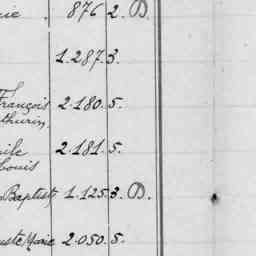 rie . 876 2. D.
1.287. 3.
François 2.180. 5.
thurin.
2.181. 5.
Louis
Baptiste 1.125. 3. D.
uste Marie 2.050. 5.